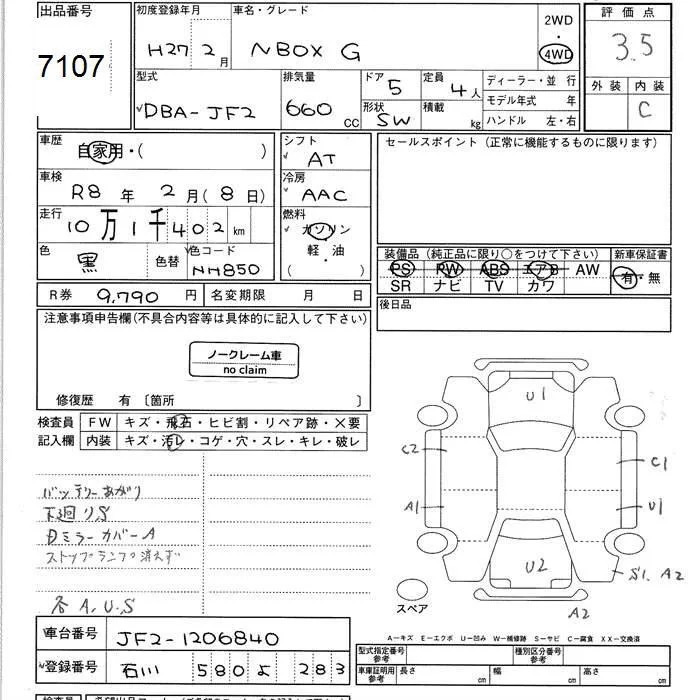 出品番号 7107
初度登録年月 H27 2月
車名・グレード NBOX G
2WD・4WD
評価点 3.5
外装 内装 C
型式 DBA-JF2
排気量 660 CC
ドア 5
定員 4人
形状 SW
積載 kg
ディーラー・並行
モデル年式 年
ハンドル 左・右
車歴 自家用・( )
車検 R8年 2月(8日)
走行 10万1千402km
色 黒 色替 色コード NH850
シフト AT
冷房 AAC
燃料 ガソリン・軽・油 ( )
セールスポイント(正常に機能するものに限ります)
装備品(純正品に限り○をつけて下さい) 新車保証書
PS PW ABS エアB AW 有・無
SR ナビ TV カワ
R券 9,790円 名変期限 月 日
後日品
注意事項申告欄(不具合内容等は具体的に記入して下さい)
ノークレーム車
no claim
修復歴 有〔箇所 〕
検査員記入欄
FW キズ・飛石・ヒビ割・リペア跡・×要
内装 キズ・汚レ・コゲ・穴・スレ・キレ・破レ
バッテリーあがり
下廻りS
Dミラーカバー A
ストップランプ消えず
各A.U.S
U1
C2 C1
A1 U1
U2
S1. A2
A2
スペア
A−キズ E−エクボ U−凹み W−補修跡 S−サビ C−腐食 XX−交換済
車台番号 JF2-1206840
登録番号 石川 580 よ 283
型式指定番号 参考 種別区分番号 参考
車庫証明用 参考 長さ cm 幅 cm 高さ cm